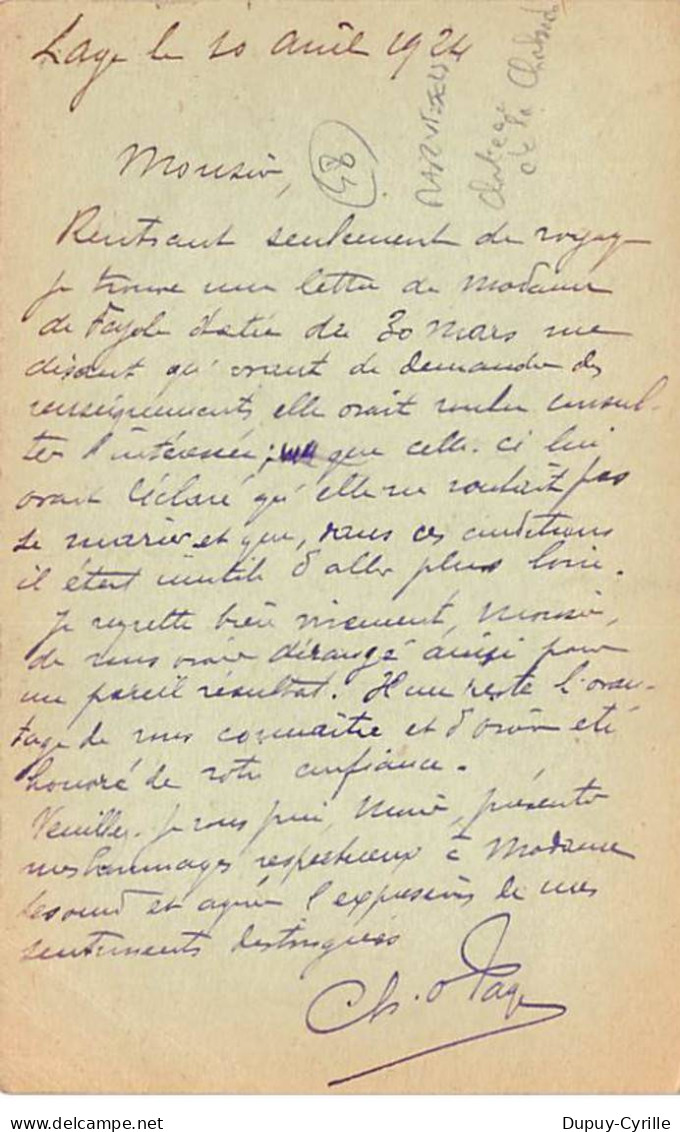 Lage le 10 avril 1924
48
MARVEJOLS
Chateau
de la
Monsieur,
Rentrant seulement de voyage
je trouve une lettre de Madame
de datée du 30 mars me
disant qu'avant de demander des
renseignements elle avait voulu consul-
ter l'intéressée; que celle-ci lui
avait déclaré qu'elle ne voulait pas
se marier et que, dans ces conditions
il était inutile d'aller plus loin.
Je regrette bien vivement, Monsieur,
de vous avoir dérangé ainsi pour
un pareil résultat. Il me reste l'avan-
tage de vous connaître et d'avoir été
honoré de votre confiance.
Veuillez, je vous prie, Monsieur, présenter
mes hommages respectueux à Madame
et agréer l'expression de mes
sentiments distingués
Ch.
www.delcampe.net
Dupuy-Cyrille